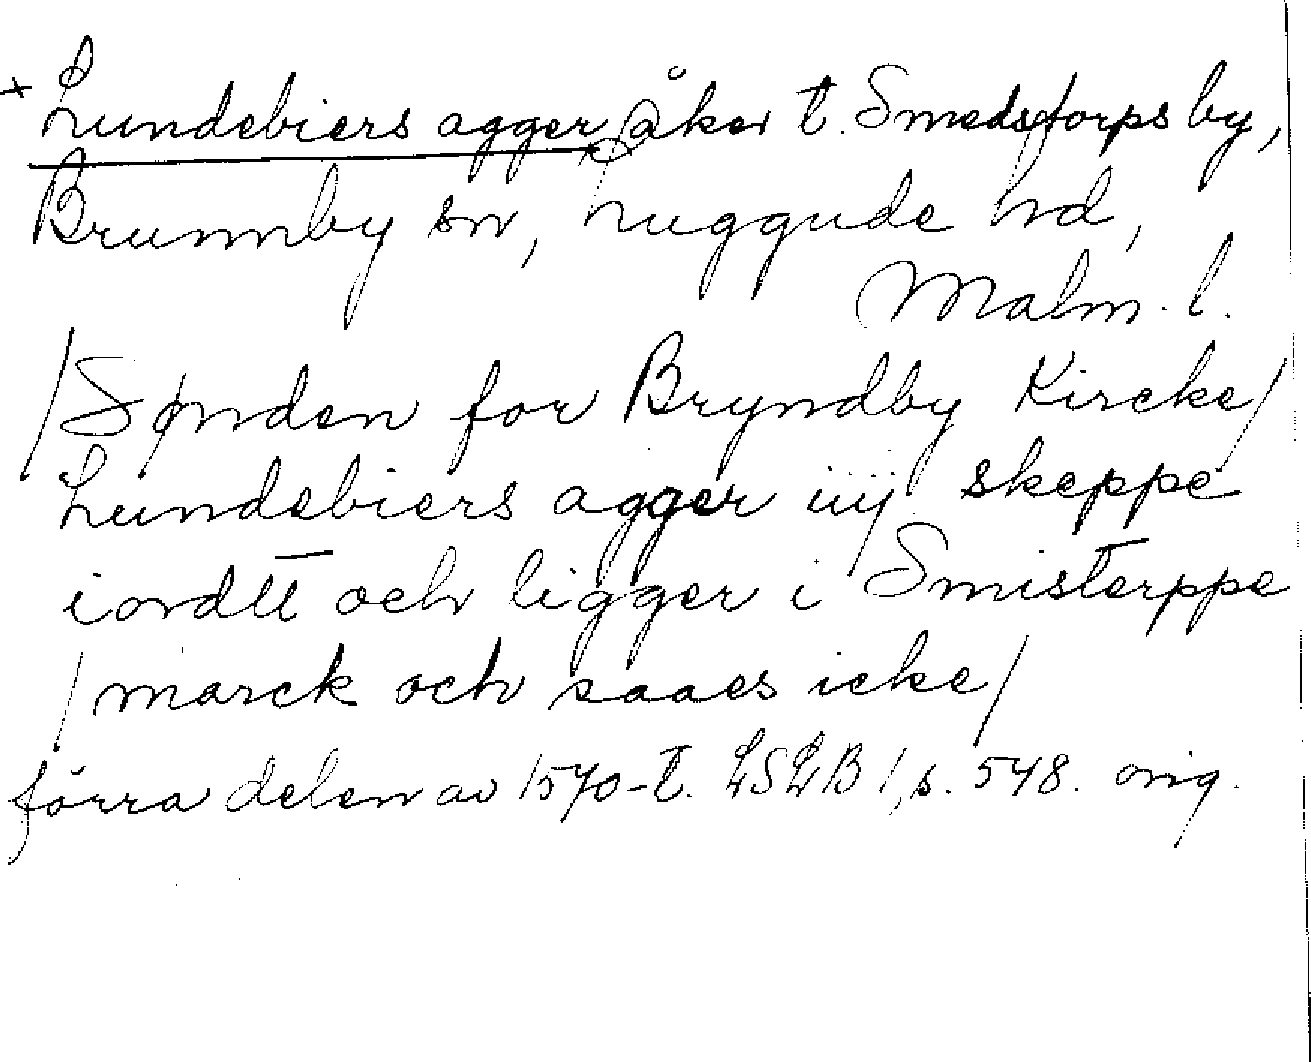 + Lundebiers agger, åker t. Smedstorps by,
Brunnby sn, Luggude hd,
Malm. l.
/Sønden for Bryndby Kircke/
Lundebiers agger iiij skeppe
iordtt och ligger i Smisterppe
/marck och saaes icke/
förra delen av 1570-t. LSLB 1, s. 548. orig.